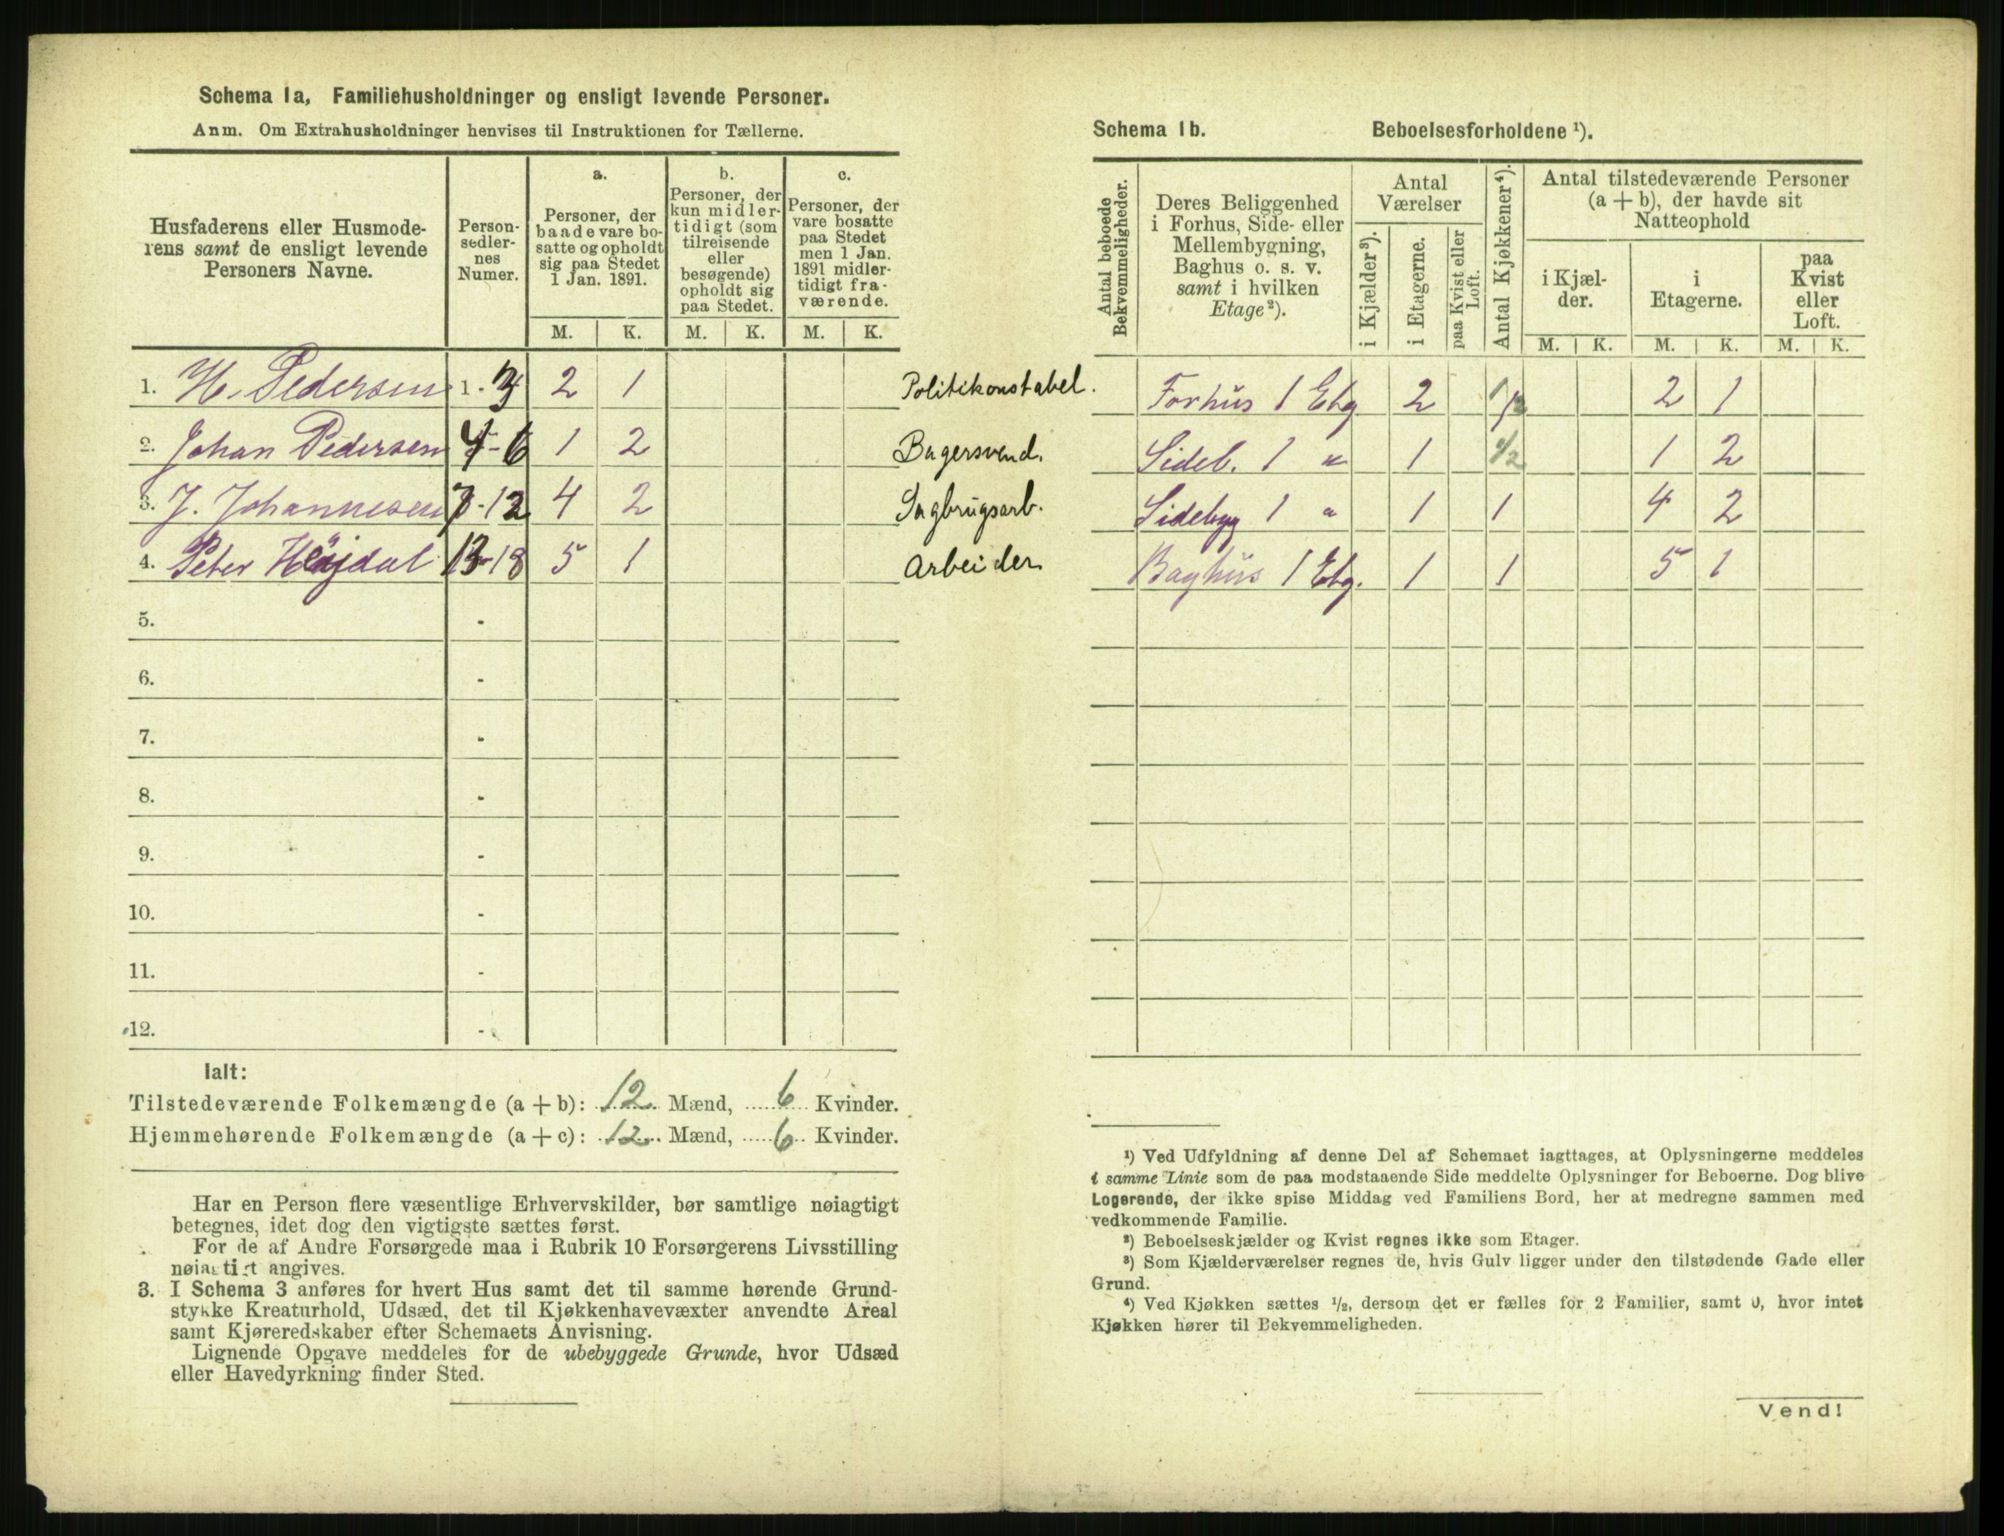 Schema 1a, Familiehusholdninger og ensligt levende Personer.
Anm. Om Extrahusholdninger henvises til Instruktionen for Tællerne.
Husfaderens eller Husmode-
rens samt de ensligt levende
Personers Navne.
Person-
sedler-
nes
Numer.
a.
Personer, der
baade vare bo-
satte og opholdt
sig paa Stedet
1 Jan. 1891.
b.
Personer, der
kun midler-
tidigt (som
tilreisende
eller
besøgende)
opholdt sig
paa Stedet.
c.
Personer, der
vare bosatte
paa Stedet
men 1 Jan.
1891 midler-
tidigt fra-
værende.
M. K. M. K. M. K.
1. H. Pedersen 1 - 3 2 1 Politikonstabel.
2. Johan Pedersen 4-6 1 2 Bagersvend.
3. J. Johannesen 7-12 4 2 Sagbrugsarb.
4. Peter Højdal 13-18 5 1 Arbeider
5. -
6. -
7. -
8. -
9. -
10. -
11. -
12. -
Ialt:
Tilstedeværende Folkemængde (a + b): 12 Mænd, 6 Kvinder.
Hjemmehørende Folkemængde (a + c): 12 Mænd, 6 Kvinder.
Har en Person flere væsentlige Erhvervskilder, bør samtlige nøiagtigt
betegnes, idet dog den vigtigste sættes først.
For de af Andre Forsørgede maa i Rubrik 10 Forsørgerens Livsstilling
nøiagtigt angives.
3. I Schema 3 anføres for hvert Hus samt det til samme hørende Grund-
stykke Kreaturhold, Udsæd, det til Kjøkkenhavevæxter anvendte Areal
samt Kjøreredskaber efter Schemaets Anvisning.
Lignende Opgave meddeles for de ubebyggede Grunde, hvor Udsæd
eller Havedyrkning finder Sted.
Schema 1b. Beboelsesforholdene ¹).
Antal beboede
Bekvemmeligheder.
Deres Beliggenhed
i Forhus, Side- eller
Mellembygning,
Baghus o. s. v.
samt i hvilken
Etage²).
Antal
Værelser
i Kjælder³).
i Etagerne.
paa Kvist eller
Loft.
Antal Kjøkkener⁴).
Antal tilstedeværende Personer
(a + b), der havde sit
Natteophold
i Kjæl-
der.
i
Etagerne.
paa
Kvist
eller
Loft.
M. K. M. K. M. K.
Forhus 1 Etg 2 1/2 2 1
Sideb. 1 " 1 1/2 1 2
Sidebyg 1 " 1 1 4 2
Baghus 1 Etg. 1 1 5 1
¹) Ved Udfyldning af denne Del af Schemaet iagttages, at Oplysningerne meddeles
i samme Linie som de paa modstaaende Side meddelte Oplysninger for Beboerne. Dog blive
Logerende, der ikke spise Middag ved Familiens Bord, her at medregne sammen med
vedkommende Familie.
²) Beboelseskjælder og Kvist regnes ikke som Etager.
³) Som Kjælderværelser regnes de, hvis Gulv ligger under den tilstødende Gade eller
Grund.
⁴) Ved Kjøkken sættes ¹/₂, dersom det er fælles for 2 Familier, samt 0, hvor intet
Kjøkken hører til Bekvemmeligheden.
Vend!